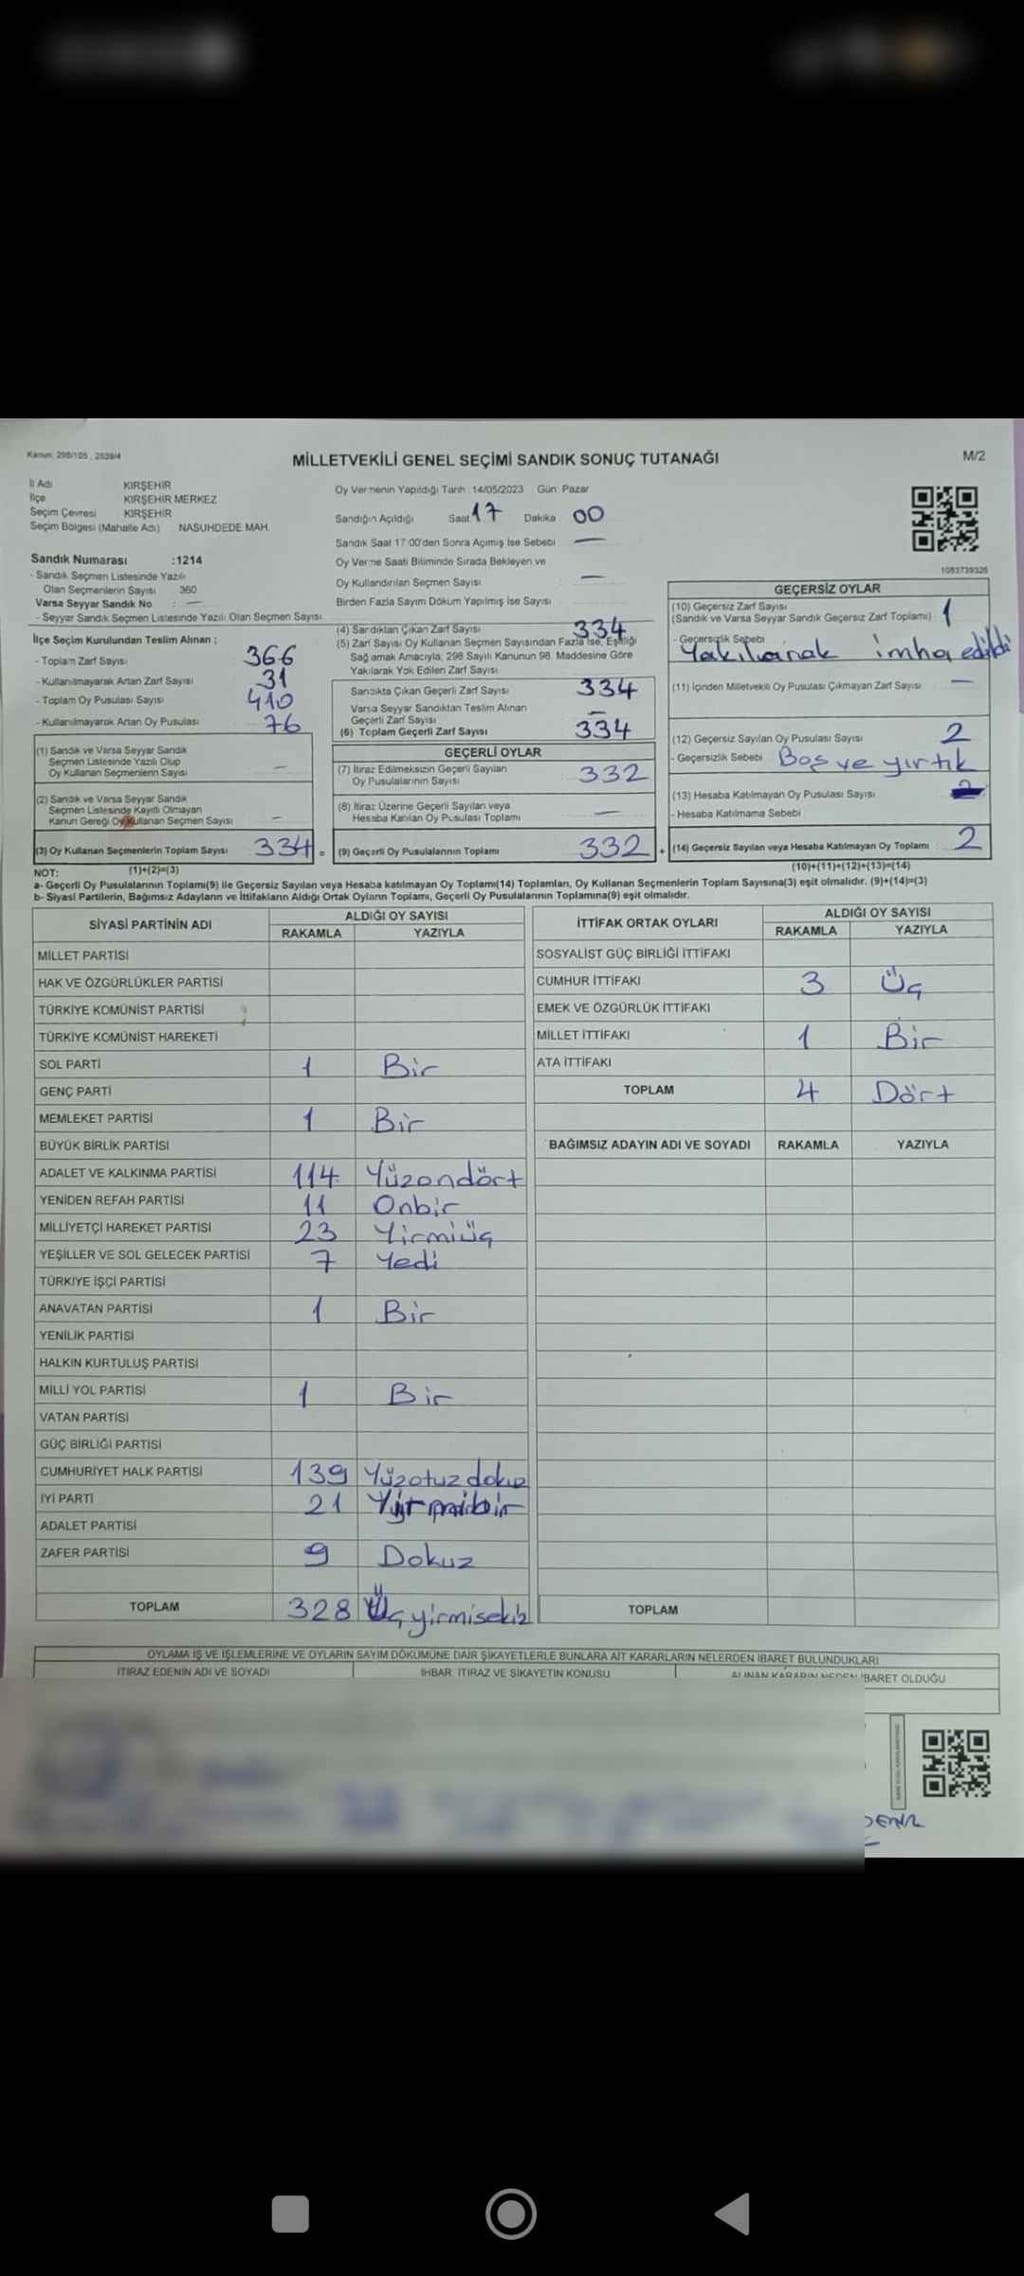 Kanun: 298/105, 2839/4
MİLLETVEKİLİ GENEL SEÇİMİ SANDIK SONUÇ TUTANAĞI
M/2
İl Adı KIRŞEHİR
İlçe KIRŞEHİR MERKEZ
Seçim Çevresi KIRŞEHİR
Seçim Bölgesi (Mahalle Adı) NASUHDEDE MAH.
Oy Vermenin Yapıldığı Tarih : 14/05/2023 Gün: Pazar
Sandığın Açıldığı Saat 17 Dakika 00
Sandık Saat 17:00'den Sonra Açılmış İse Sebebi —
Oy Verme Saati Bitiminde Sırada Bekleyen ve
Oy Kullandırılan Seçmen Sayısı —
Birden Fazla Sayım Döküm Yapılmış İse Sayısı
1053739325
Sandık Numarası :1214
- Sandık Seçmen Listesinde Yazılı
Olan Seçmenlerin Sayısı 360
Varsa Seyyar Sandık No : —
- Seyyar Sandık Seçmen Listesinde Yazılı Olan Seçmen Sayısı
İlçe Seçim Kurulundan Teslim Alınan ;
- Toplam Zarf Sayısı 366
- Kullanılmayarak Artan Zarf Sayısı 31
- Toplam Oy Pusulası Sayısı 410
- Kullanılmayarak Artan Oy Pusulası 76
(1) Sandık ve Varsa Seyyar Sandık
Seçmen Listesinde Yazılı Olup
Oy Kullanan Seçmenlerin Sayısı —
(2) Sandık ve Varsa Seyyar Sandık
Seçmen Listesinde Kayıtlı Olmayan
Kanun Gereği Oy Kullanan Seçmen Sayısı —
(3) Oy Kullanan Seçmenlerin Toplam Sayısı 334 =
(1)+(2)=(3)
(4) Sandıktan Çıkan Zarf Sayısı 334
(5) Zarf Sayısı Oy Kullanan Seçmen Sayısından Fazla İse, Eşitliği
Sağlamak Amacıyla, 298 Sayılı Kanunun 98. Maddesine Göre
Yakılarak Yok Edilen Zarf Sayısı
Sandıkta Çıkan Geçerli Zarf Sayısı 334
Varsa Seyyar Sandıktan Teslim Alınan
Geçerli Zarf Sayısı —
(6) Toplam Geçerli Zarf Sayısı 334
GEÇERLİ OYLAR
(7) İtiraz Edilmeksizin Geçerli Sayılan
Oy Pusulalarının Sayısı 332
(8) İtiraz Üzerine Geçerli Sayılan veya
Hesaba Katılan Oy Pusulası Toplamı —
(9) Geçerli Oy Pusulalarının Toplamı 332 +
GEÇERSİZ OYLAR
(10) Geçersiz Zarf Sayısı
(Sandık ve Varsa Seyyar Sandık Geçersiz Zarf Toplamı) 1
- Geçersizlik Sebebi Yakılarak imha edildi
(11) İçinden Milletvekili Oy Pusulası Çıkmayan Zarf Sayısı —
(12) Geçersiz Sayılan Oy Pusulası Sayısı 2
- Geçersizlik Sebebi Boş ve yırtık
(13) Hesaba Katılmayan Oy Pusulası Sayısı
- Hesaba Katılmama Sebebi
(14) Geçersiz Sayılan veya Hesaba Katılmayan Oy Toplamı 2
(10)+(11)+(12)+(13)=(14)
NOT:
a- Geçerli Oy Pusulalarının Toplamı(9) ile Geçersiz Sayılan veya Hesaba katılmayan Oy Toplamı(14) Toplamları, Oy Kullanan Seçmenlerin Toplam Sayısına(3) eşit olmalıdır. (9)+(14)=(3)
b- Siyasi Partilerin, Bağımsız Adayların ve İttifakların Aldığı Ortak Oyların Toplamı, Geçerli Oy Pusulalarının Toplamına(9) eşit olmalıdır.
SİYASİ PARTİNİN ADI ALDIĞI OY SAYISI
RAKAMLA YAZIYLA
MİLLET PARTİSİ
HAK VE ÖZGÜRLÜKLER PARTİSİ
TÜRKİYE KOMÜNİST PARTİSİ
TÜRKİYE KOMÜNİST HAREKETİ
SOL PARTİ 1 Bir
GENÇ PARTİ
MEMLEKET PARTİSİ 1 Bir
BÜYÜK BİRLİK PARTİSİ
ADALET VE KALKINMA PARTİSİ 114 Yüzondört
YENİDEN REFAH PARTİSİ 11 Onbir
MİLLİYETÇİ HAREKET PARTİSİ 23 Yirmiüç
YEŞİLLER VE SOL GELECEK PARTİSİ 7 Yedi
TÜRKİYE İŞÇİ PARTİSİ
ANAVATAN PARTİSİ 1 Bir
YENİLİK PARTİSİ
HALKIN KURTULUŞ PARTİSİ
MİLLİ YOL PARTİSİ 1 Bir
VATAN PARTİSİ
GÜÇ BİRLİĞİ PARTİSİ
CUMHURİYET HALK PARTİSİ 139 Yüzotuzdokuz
İYİ PARTİ 21 Yirmibir
ADALET PARTİSİ
ZAFER PARTİSİ 9 Dokuz
TOPLAM 328 Üçyirmisekiz
İTTİFAK ORTAK OYLARI ALDIĞI OY SAYISI
RAKAMLA YAZIYLA
SOSYALİST GÜÇ BİRLİĞİ İTTİFAKI
CUMHUR İTTİFAKI 3 Üç
EMEK VE ÖZGÜRLÜK İTTİFAKI
MİLLET İTTİFAKI 1 Bir
ATA İTTİFAKI
TOPLAM 4 Dört
BAĞIMSIZ ADAYIN ADI VE SOYADI RAKAMLA YAZIYLA
TOPLAM
OYLAMA İŞ VE İŞLEMLERİNE VE OYLARIN SAYIM DÖKÜMÜNE DAİR ŞİKAYETLERLE BUNLARA AİT KARARLARIN NELERDEN İBARET BULUNDUKLARI
İTİRAZ EDENİN ADI VE SOYADI İHBAR, İTİRAZ VE ŞİKAYETİN KONUSU ALINAN KARARIN NEDEN İBARET OLDUĞU